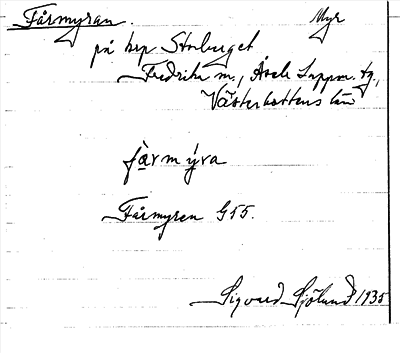 Fårmyran. Myr
på krp Storberget
Fredrika sn., Åsele Lappm. tg.,
Västerbottens län
får m ýra
Fårmyren G55.
Sigvard Sjölund 1935